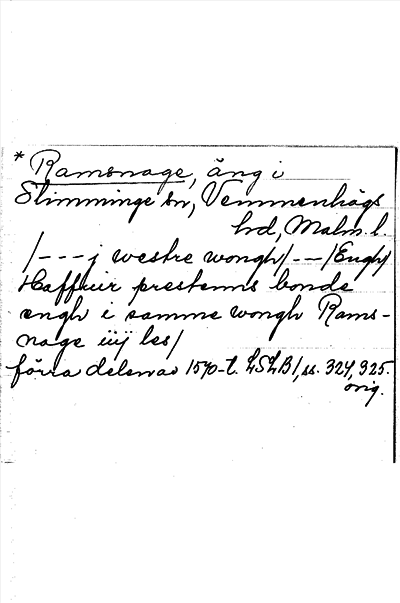 * Ramsnage, äng i
Slimminge sn, Vemmenhögs
hd, Malm. l.
/---j westre wongh/--/Engh/
Haffuir prestenns bonde
engh i samme wongh Rams-
nage iiij les/
förra delen av 1570-t. LSLB/, ss. 324, 325.
orig.